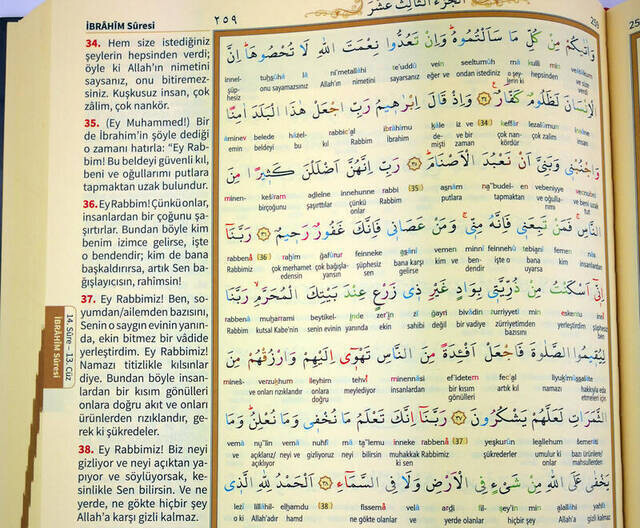 İBRÂHİM Sûresi
٢٥٩
الجزء الثالث عشر
259
34. Hem size istediğiniz
şeylerin hepsinden verdi;
öyle ki Allah'ın nimetini
saysanız, onu bitiremez-
siniz. Kuşkusuz insan, çok
zâlim, çok nankör.
35. (Ey Muhammed!) Bir
de İbrahim'in şöyle dediği
o zamanı hatırla: "Ey Rab-
bim! Bu beldeyi güvenli kıl,
beni ve oğullarımı putlara
tapmaktan uzak bulundur.
36. Ey Rabbim! Çünkü onlar,
insanlardan bir çoğunu şa-
şırtırlar. Bundan böyle kim
benim izimce gelirse, işte
o bendendir; kim de bana
başkaldırırsa, artık Sen ba-
ğışlayıcısın, rahimsin!
37. Ey Rabbimiz! Ben, so-
yumdan/ailemden bazısını,
Senin o saygın evinin yanın-
da, ekin bitmez bir vâdide
yerleştirdim. Ey Rabbimiz!
Namazı titizlikle kılsınlar
diye. Bundan böyle insan-
lardan bir kısım gönülleri
onlara doğru akıt ve onları
ürünlerden rızıklandır, ge-
rek ki şükredeler.
38. Ey Rabbimiz! Biz neyi
gizliyor ve neyi açıktan ya-
pıyor ve söylüyorsak, ke-
sinlikle Sen bilirsin. Ve ne
yerde, ne gökte hiçbir şey
Allah'a karşı gizli kalmaz.
14. Sûre – 13. Cüz
İBRÂHİM Sûresi
وَاٰتٰيكُمْ مِنْ كُلِّ مَا سَاَلْتُمُوهُ وَاِنْ تَعُدُّوا نِعْمَتَ اللّٰهِ لَا تُحْصُوهَا اِنَّ
innel- tuḥṣûhâ lâ ni'metallâhi te'uddû vein seeltumûh mâ kulli min
onu sayamazsınız Allah'ın nimetini saysanız eğer ve ondan istediniz o şey- hepsinden
الْاِنْسَانَ لَظَلُومٌ كَفَّارٌ ﴿٣٤﴾ وَاِذْ قَالَ اِبْرٰهِيمُ رَبِّ اجْعَلْ هٰذَا الْبَلَدَ اٰمِنًا
âminev beledе hâzel- rabbic'al ibrâhîmu kâle iz ve (34) keffâr lezalûmun
emin beldeyi bu Rabbim kıl İbrahim de- ve bir çok nan- çok zalim insan
mişti zaman kördür
وَاجْنُبْنِي وَبَنِيَّ اَنْ نَعْبُدَ الْاَصْنَامَ ﴿٣٥﴾ رَبِّ اِنَّهُنَّ اَضْلَلْنَ كَثِيرًا مِنَ
minen- kesîram aḍlelne innehunne rabbi (35) aṣnâm na'budel- en vebeniyye
birçoğunu şaşırttılar çünkü onlar Rabbim putlara tapmaktan
النَّاسِ فَمَنْ تَبِعَنِي فَاِنَّهُ مِنِّي وَمَنْ عَصَانِي فَاِنَّكَ غَفُورٌ رَحِيمٌ ﴿٣٦﴾ رَبَّنَا
rabbenâ (36) raḥîm ğafûrur feinneke aṣânî vemen minnî feinnehû tebianî femen nâsi
Rabbimiz çok merhamet çok bağışla- şüphesiz bana karşı kim ve ben- işte o bana kim insanlardan
اِنِّي اَسْكَنْتُ مِنْ ذُرِّيَّتِي بِوَادٍ غَيْرِ ذِي زَرْعٍ عِنْدَ بَيْتِكَ الْمُحَرَّمِ رَبَّنَا
rabbenâ muḥarrami beytikel- 'inde zer'in zî ğayri bivâdin żurriyyetî min eskentu innî
Rabbim kutsal Kabe'nin senin evinin yanında ekin sahibi değil bir vadiye zürriyetimden yerleştirdim
لِيُقِيمُوا الصَّلٰوةَ فَاجْعَلْ اَفْئِدَةً مِنَ النَّاسِ تَهْوِي اِلَيْهِمْ وَارْزُقْهُمْ مِنَ
mines- verzukhum ileyhim tehvî minennâsi ef'idetem fec'al liyukîmuṣṣalâte
ve onları rızıklandır onlara doğru meylediyor insanlardan bir kısım gönülleri artık kıl namazı
الثَّمَرَاتِ لَعَلَّهُمْ يَشْكُرُونَ ﴿٣٧﴾ رَبَّنَا اِنَّكَ تَعْلَمُ مَا نُخْفِي وَمَا نُعْلِنُ وَمَا
vemâ nu'lin vemâ nuhfî mâ ta'lemu inneke rabbenâ (37) yeşkurûn leallehum
ve açıklarız neyi/ ve gizliyoruz neyi bilirsin muhakkak Rabbimiz şükrederler umulur ki bazı ürünlere/
يَخْفٰى عَلَى اللّٰهِ مِنْ شَيْءٍ فِي الْاَرْضِ وَلَا فِي السَّمَاءِ ﴿٣٨﴾ اَلْحَمْدُ لِلّٰهِ الَّذِي
lezî lillâhil- elḥamdu (38) fissemâ' velâ arḍi fil- şey'in min alallâhi yaḫfâ
o ki Allah'adır hamd ne gökte olanlar ve yerde olanlar hiçbir şey Allah'a gizli kalmaz